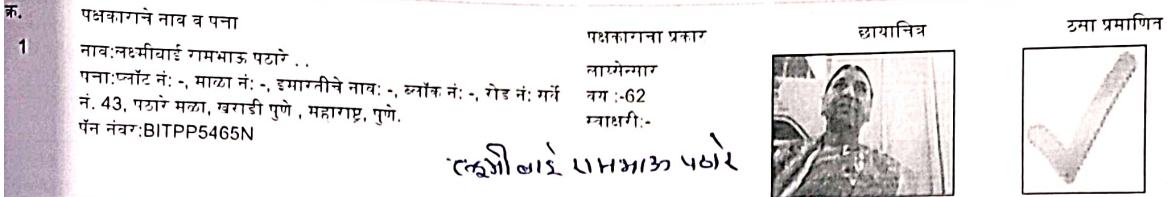 क्र. पक्षकाराचे नाव व पत्ता पक्षकाराचा प्रकार छायाचित्र ठसा प्रमाणित
1 नाव:लक्ष्मीबाई रामभाऊ पठारे . .
पत्ता:प्लॉट नं: -, माळा नं: -, इमारतीचे नाव: -, ब्लॉक नं: -, रोड नं: सर्वे
नं. 43, पठारे मळा, खराडी पुणे , महाराष्ट्र, पुणे.
पॅन नंबर:BITPP5465N
वय :-62
स्वाक्षरी:-
लक्ष्मीबाई रामभाऊ पठारे